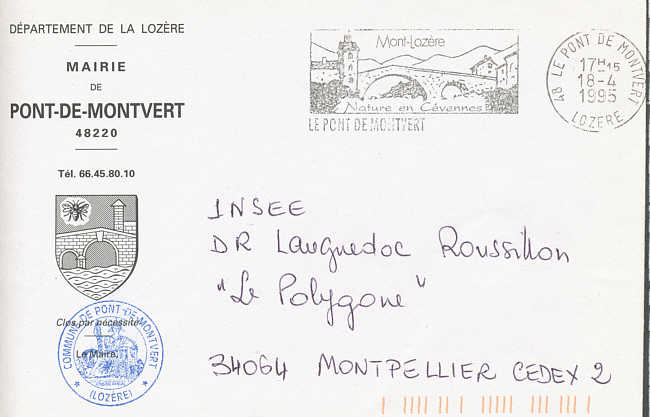 DÉPARTEMENT DE LA LOZÈRE
MAIRIE
DE
PONT-DE-MONTVERT
48220
Tél. 66.45.80.10
Clos par nécessité
Le Maire,
COMMUNE DE PONT-DE-MONTVERT
(LOZÈRE)
Mont-Lozère
Nature en Cévennes
LE PONT DE MONTVERT
48 LE PONT DE MONTVERT
17H15
18-4
1995
LOZERE
INSEE
DR Languedoc Roussillon
"Le Polygone"
34064 MONTPELLIER CEDEX 2